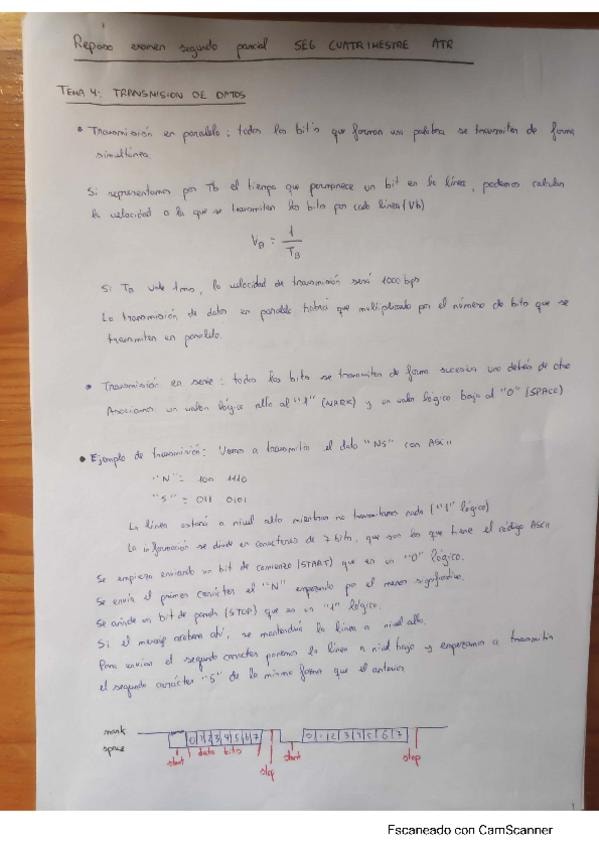 Repaso examen segundo parcial SEG CUATRIMESTRE ATR
TEMA 4: TRANSMISION DE DATOS
• Transmisión en paralelo: todos los bits que forman una palabra se transmiten de forma
simultánea.
Si representamos por Tb el tiempo que permanece un bit en la línea, podemos calcular
la velocidad a la que se transmiten los bits por cada línea (Vb)
VB = 1 / TB
Si TB vale 1ms, la velocidad de transmisión será 1000 bps
La transmisión de datos en paralelo habrá que multiplicarlo por el número de bits que se
transmiten en paralelo.
• Transmisión en serie: todos los bits se transmiten de forma sucesiva uno detrás de otro
Asociamos un valor lógico alto al "1" (MARK) y un valor lógico bajo al "0" (SPACE)
• Ejemplo de transmisión: Vamos a transmitir el dato "N5" con ASCII
"N": 100 1110
"5" = 011 0101
La línea estará a nivel alto mientras no transmitamos nada ("1" lógico)
La información se divide en caracteres de 7 bits, que son los que tiene el código ASCII
Se empieza enviando un bit de comienzo (START) que es un "0" lógico.
Se envía el primer carácter el "N" empezando por el menos significativo.
Se añade un bit de parada (STOP) que es un "1" lógico.
Si el mensaje acabara ahí, se mantendrá la línea a nivel alto.
Para enviar el segundo carácter ponemos la línea a nivel bajo y empezamos a transmitir
el segundo carácter "5" de la misma forma que el anterior
mark
space
0 1 2 3 4 5 6 7
0 1 2 3 4 5 6 7
start data bits stop start stop
1
Escaneado con CamScanner